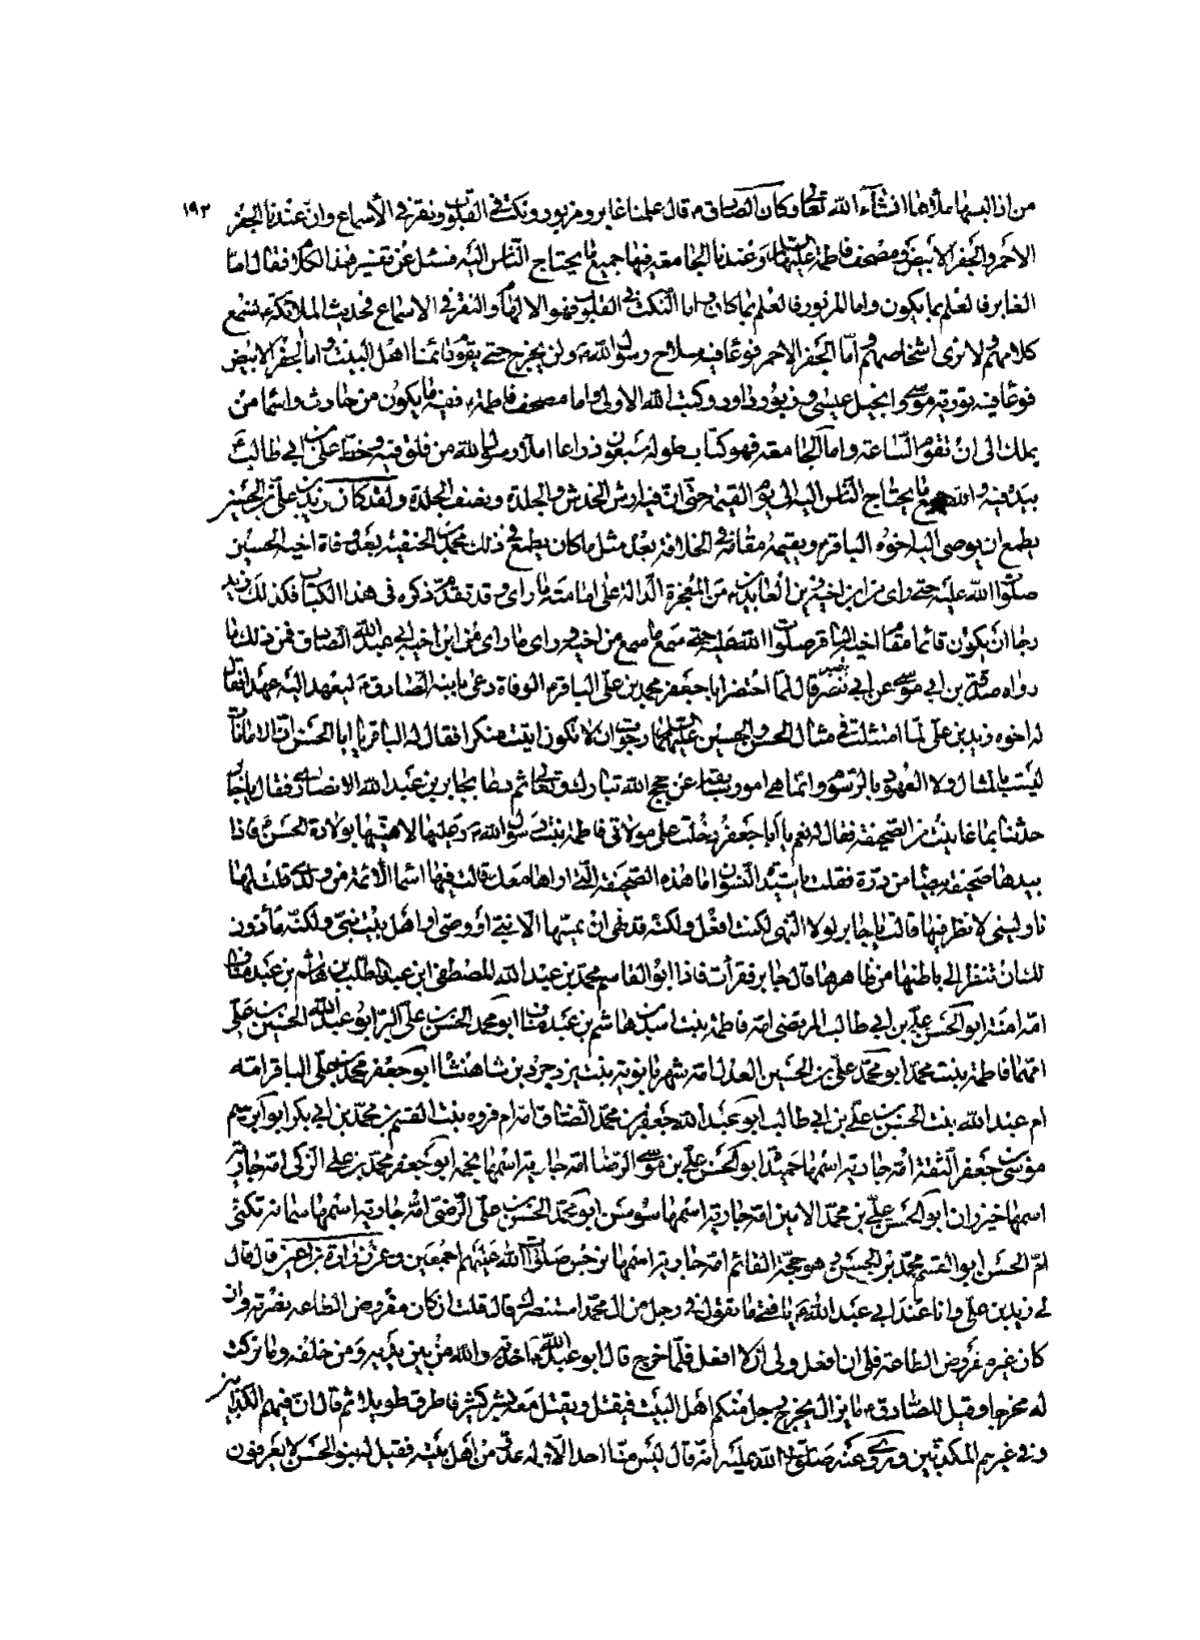 من اذا لبسها ملأها انشآء الله تعالى وكان الصادق ع قال علمنا غابر ومزبور ونكت فى القلوب ونقر فى الأسماع وان عندنا الجفر ١٩٢
الاحمر والجفر الابيض ومصحف فاطمة عليها السلم وعندنا الجامعة فيها جميع ما يحتاج الناس اليه فسئل عن تفسير هذا الكلام فقال اما
الغابر فالعلم بما يكون واما المزبور فالعلم بما كان واما النكت فى القلوب فهو الالهام والنقر فى الاسماع فحديث الملائكة ع نسمع
كلامهم ولا نرى اشخاصهم واما الجفر الاحمر فوعا فيه سلاح رسول الله ص ولن يخرج حتى يقوم قائمنا اهل البيت واما الجفر الابيض
فوعا فيه تورية موسى وانجيل عيسى وزبور داود وكتب الله الاولى واما مصحف فاطمة ع ففيه ما يكون من حادث واسما من
يملك الى ان تقوم الساعة واما الجامعة فهو كتاب طوله سبعون ذراعا املاء رسول الله من فلق فيه وخط على بن ابى طالب ع
بيده فيه والله جميع ما يحتاج الناس اليه الى يوم القيمة حتى ان فيه ارش الخدش والجلدة ونصف الجلدة ولقد كان زيد بن على بن الحسين
يطمع ان يوصى اليه اخوه الباقر ع ويقيمه مقامه فى الخلافة بعده مثل ما كان يطمع فى ذلك محمد بن الحنفية بعد وفاة اخيه الحسين
صلوات الله عليه حتى راى من ابن اخيه زين العابدين ع من المعجزة الدالة على امامته ما راى وقد تقدم ذكره فى هذا الكتاب فكذلك زيد
رجا ان يكون قائما مقام اخيه الباقر صلوات الله عليه حتى سمع ما سمع من اخيه وراى ما راى من ابن اخيه ابى عبد الله الصادق فمن ذلك ما
رواه صدقة بن ابى موسى عن ابى نضرة قال لما احتضر ابا جعفر محمد بن على الباقر ع الوفاة دعى بابنه الصادق ع ليعهد اليه عهدا فقال
له اخوه زيد بن على لما امتثلت فى مثال الحسن والحسين عليهما السلم رجوت ان لا تكون اتيت منكرا فقال له الباقر يا ابا الحسن ان الامانات
ليست بالمثال ولا العهود بالرسوم وانما هى امور سابقة عن حجج الله تبارك وتعالى ثم دعا بجابر بن عبد الله الانصارى فقال يا جابر
حدثنا بما عاينت من الصحيفة فقال له نعم يا ابا جعفر دخلت على مولاتى فاطمة بنت رسول الله ص وعليها لاهنيها بولادة الحسن ع فاذا
بيدها صحيفة بيضا من درة فقلت يا سيدة النسوان ما هذه الصحيفة التى اراها معك قالت فيها اسما الأئمة من ولدى قلت لها
ناولينى لا نظر فيها قالت يا جابر لولا النهى لكنت افعل ولكنه قد نهى ان يمسها الا نبى أو وصى او اهل بيت نبى ولكنه مأذون
لك ان تنظر الى باطنها من ظاهرها قال جابر فقرأت فاذا ابو القاسم محمد بن عبد الله المصطفى ابن عبد المطلب بن هاشم بن عبد مناف
امه امنة ابو الحسن على بن ابى طالب المرتضى امه فاطمة بنت اسد بن هاشم بن عبد مناف ابو محمد الحسن بن على البر ابو عبد الله الحسين بن على
امهما فاطمة بنت محمد ابو محمد على بن الحسين العدل امه شهربانويه بنت يزدجرد بن شاهنشا ابو جعفر محمد بن على الباقر امه
ام عبد الله بنت الحسن بن على بن ابى طالب ابو عبد الله جعفر بن محمد الصادق امه ام فروه بنت القسم بن محمد بن ابى بكر ابو ابرهيم
موسى بن جعفر الثقة امه جارية اسمها حميدة ابو الحسن على بن موسى الرضا امه جارية اسمها نجمه ابو جعفر محمد بن على الزكى امه جارية
اسمها خيزران ابو الحسن على بن محمد الامين امه جارية اسمها سوسن ابو محمد الحسن بن على الرضى امه جارية اسمها سمانه تكنى
ام الحسن ابو القسم محمد بن الحسن وهو حجة القائم امه جارية اسمها نرجس صلوات الله عليهم اجمعين وعن زرارة بن اعين قال قال
لى زيد بن على وانا عند ابى عبد الله ع يا فتى ما تقول فى رجل من ال محمد استنصرك قال قلت ان كان مفروض الطاعه نصرته وان
كان غير مفروض الطاعة فلى ان افعل ولى ان لا افعل فلما خرج قال ابو عبد الله ع اخذته والله من بين يديه ومن خلفه وما تركت
له مخرجا وقيل للصادق ع ما يزال يخرج رجل منكم اهل البيت فيقتل ويقتل معه بشر كثير فاطرق طويلا ثم قال ان فيهم الكذابين
وفى غيرهم المكذبين وروى عنه صلوات الله عليه انه قال ليس منا احد الا وله عدو من اهل بيته فقيل له بنو الحسن لا يعرفون